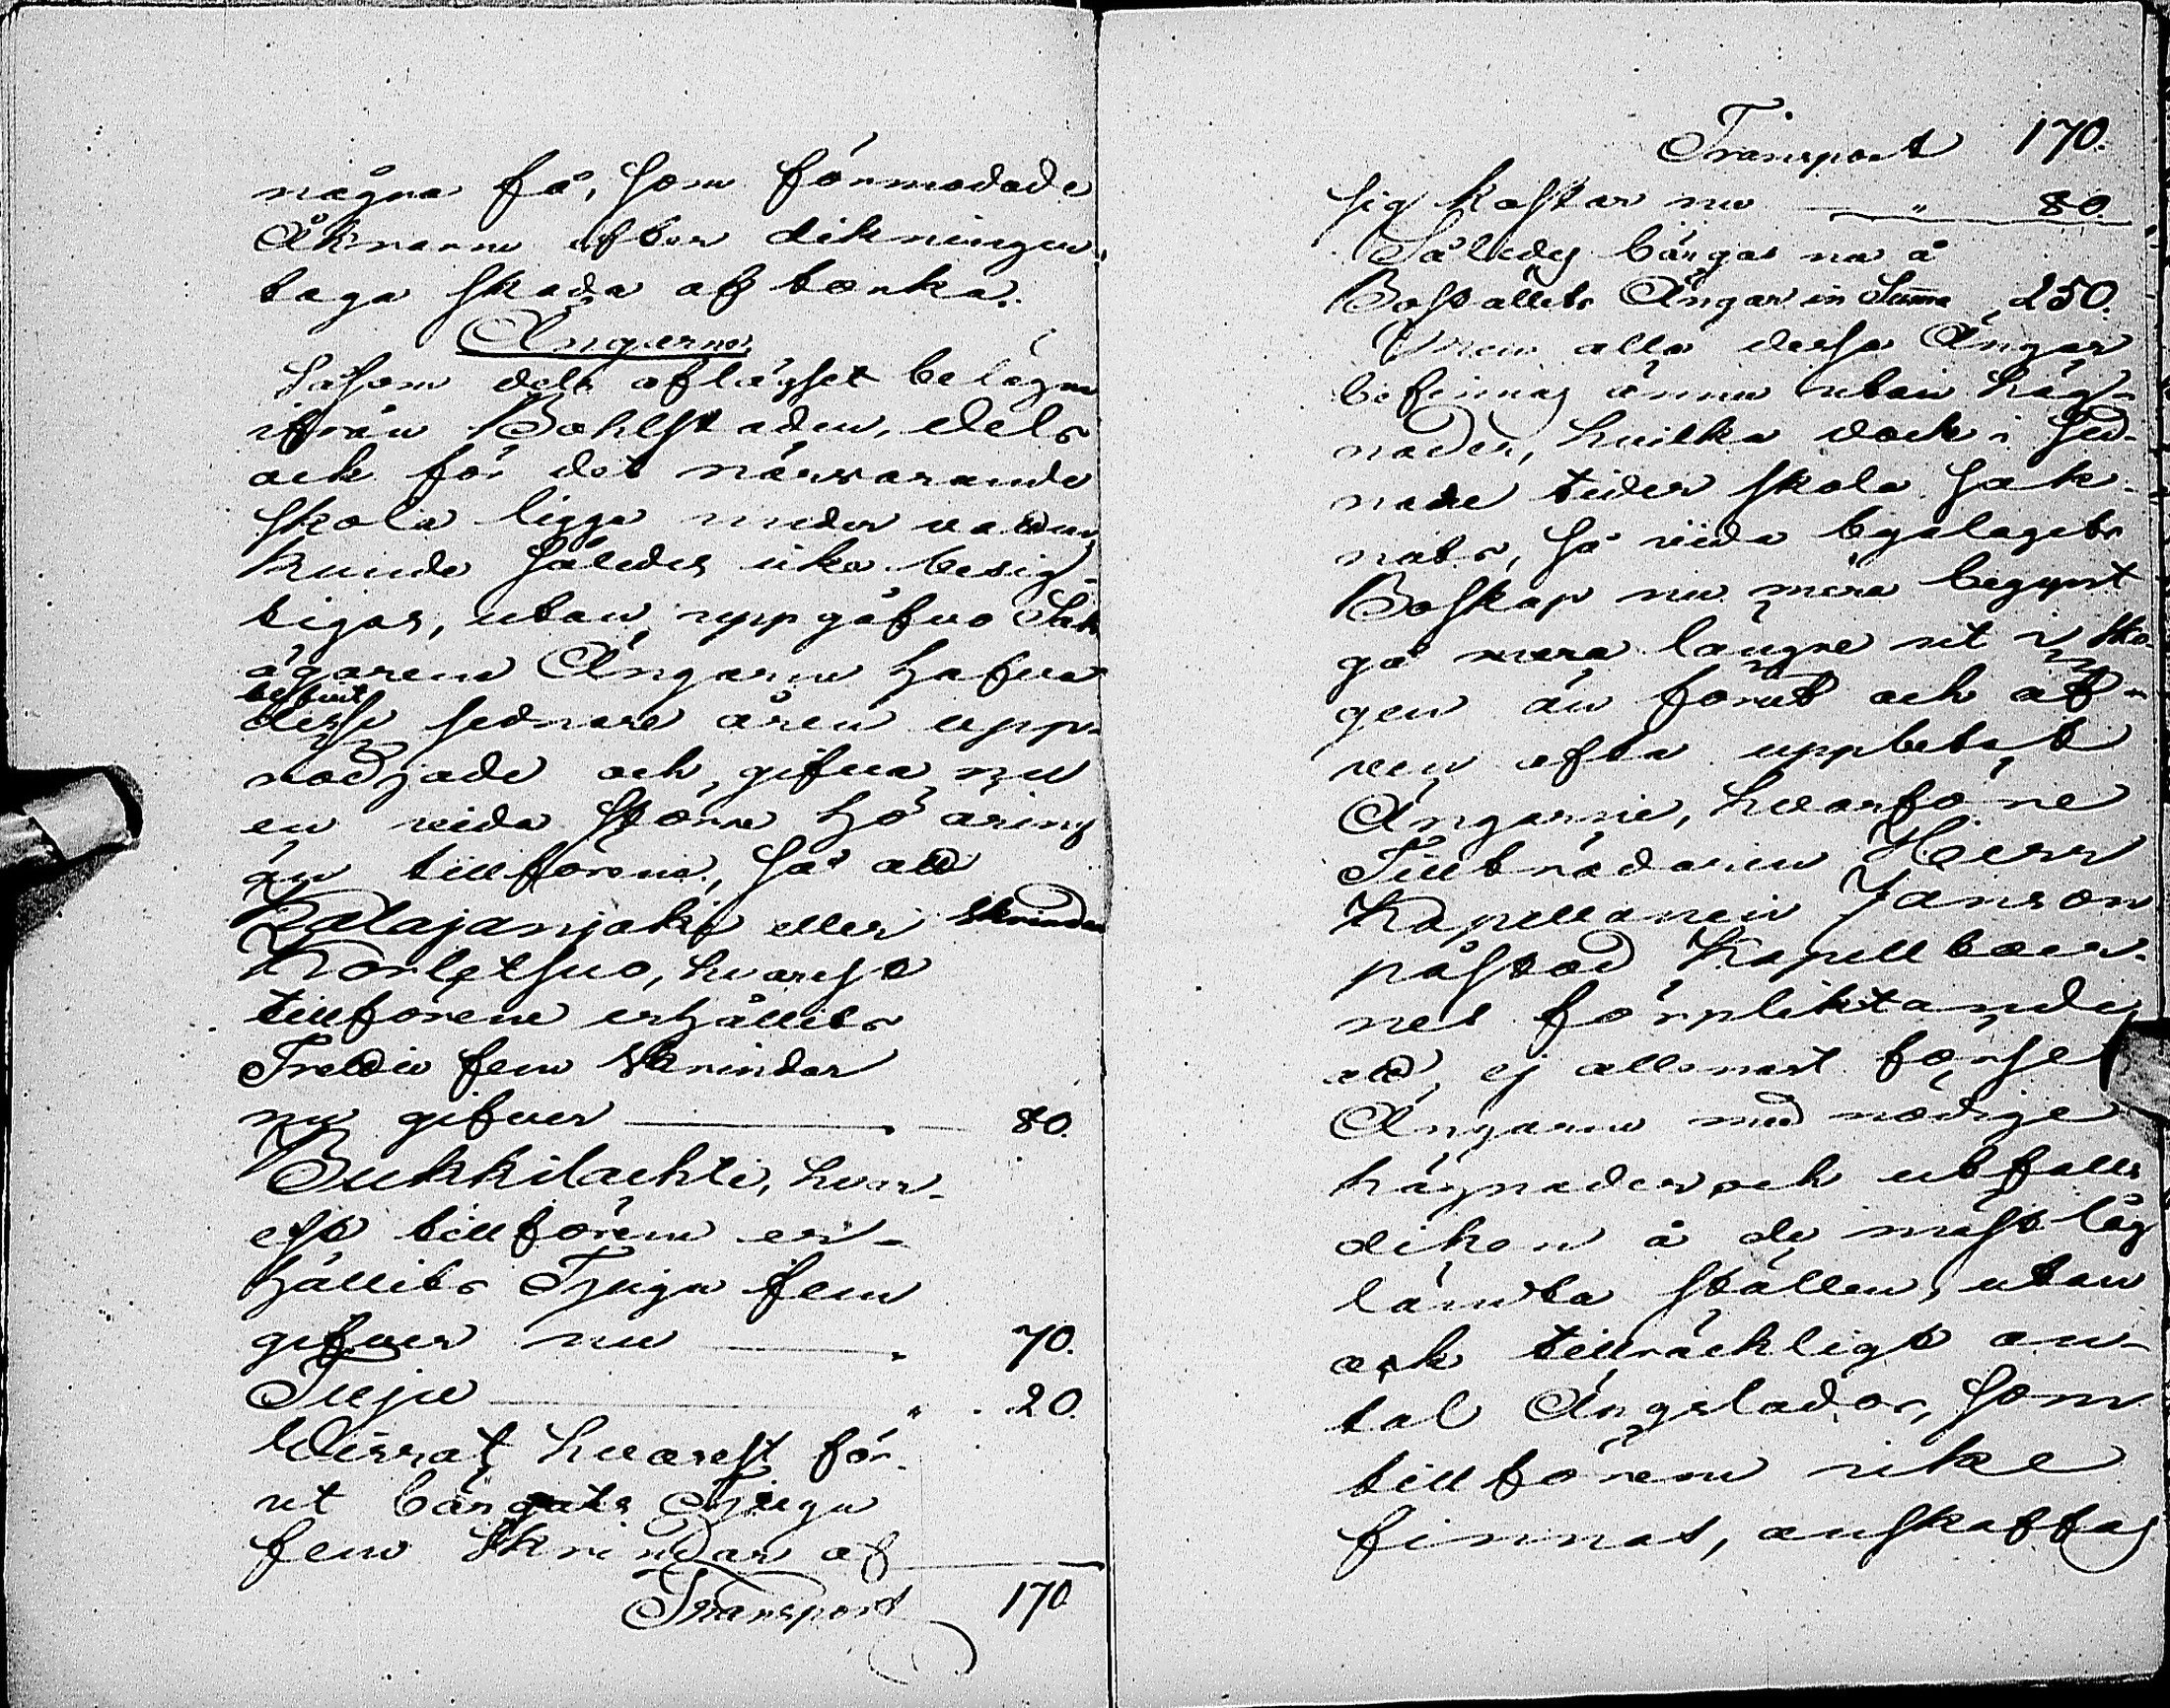 några få, som förmodade
Åkrarne efter dikningen
taga skada af torka.
Ängarne
Såsom dels aflägset belägne
ifrån Bohlstaden, dels
ock för det närvarande
skola ligga under vatten,
kunde således icke besig-
tigas, utan uppgåfvo Sak-
ägarene Ängarne hafva
bestått
desse sednare åren upp-
rödjade och gifva nu
en vida större hö äring
än tillförene, så att
Patajanjoki eller Skrindor
Korletsuo, hvarest
tillförene erhållits
Tretio fem Skrindor
nu gifver — „ — 80.
Bukkilachti, hvar-
est tillförene er-
hållits Tjugu fem
gifver nu — „ 70.
Suju — „ 20.
Virrat hvarest för-
ut bärgats Tjugu
fem Skrindor af
Transport 170
Transport 170.
sig kastar nu — „ 80.
Således bärgas nu å
Boställets Ängar in Summa 250.
Omen alla dessa Ängar
befinnas ännu utan häg-
nader, hvilka dock i sed-
nare tider skola sak-
nats, så vida byalagets
Boskap nu mera begynt
gå mera längre ut i sko-
gen än förut och äf-
ven ofta uppbetat
Ängarne, hvarföre
Tillträdaren Herr
Kapellanen Janson
påstod Kapellboer-
nes förpliktande
att ej allenast förse
Ängarne med nödige
hägnader och utfalls
diken å de mäst låg
länta ställen, utan
ock tillräckligt an-
tal Ängslador, som
tillförene icke
finnas, anskaffas